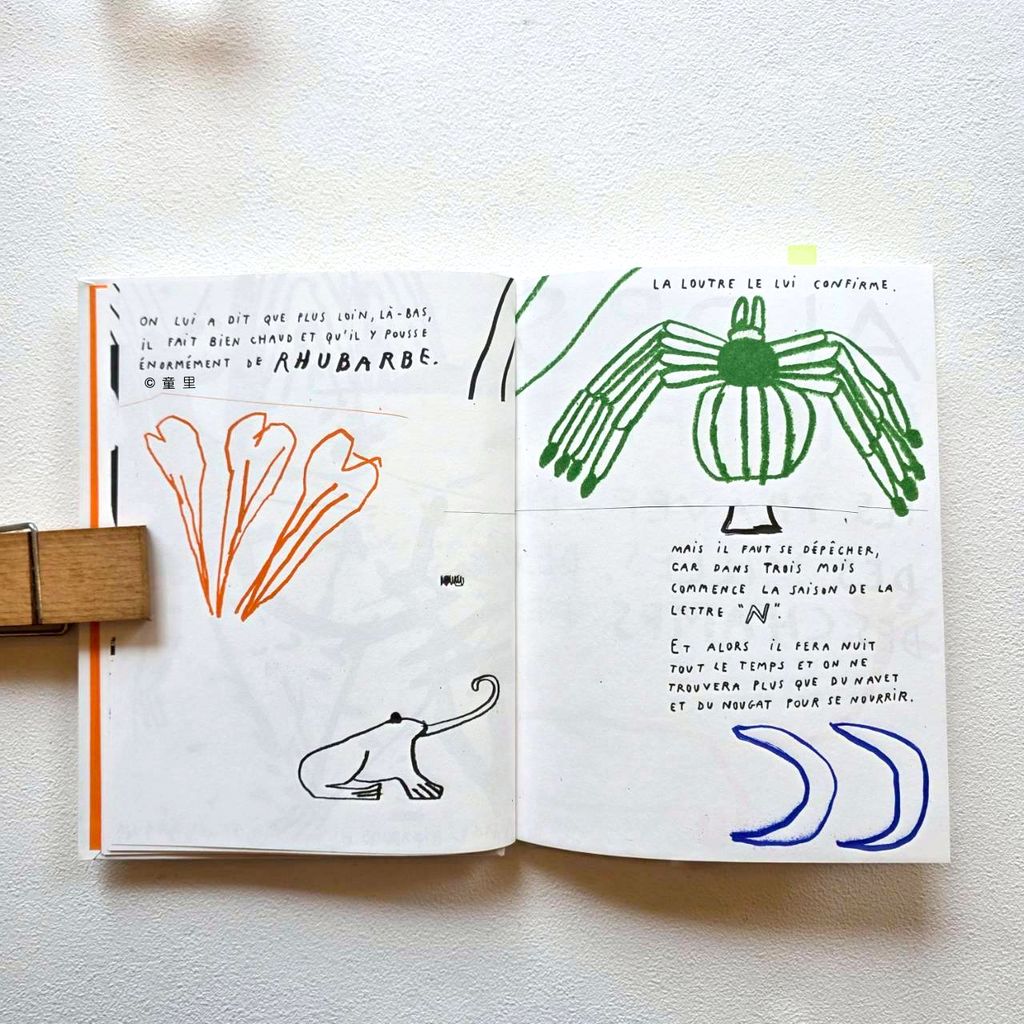 ON LUI A DIT QUE PLUS LOIN, LÀ-BAS,
IL FAIT BIEN CHAUD ET QU'IL Y POUSSE
ÉNORMÉMENT DE RHUBARBE.
© 童里
LA LOUTRE LE LUI CONFIRME.
MAIS IL FAUT SE DÉPÊCHER,
CAR DANS TROIS MOIS
COMMENCE LA SAISON DE LA
LETTRE "N".
ET ALORS IL FERA NUIT
TOUT LE TEMPS ET ON NE
TROUVERA PLUS QUE DU NAVET
ET DU NOUGAT POUR SE NOURRIR.